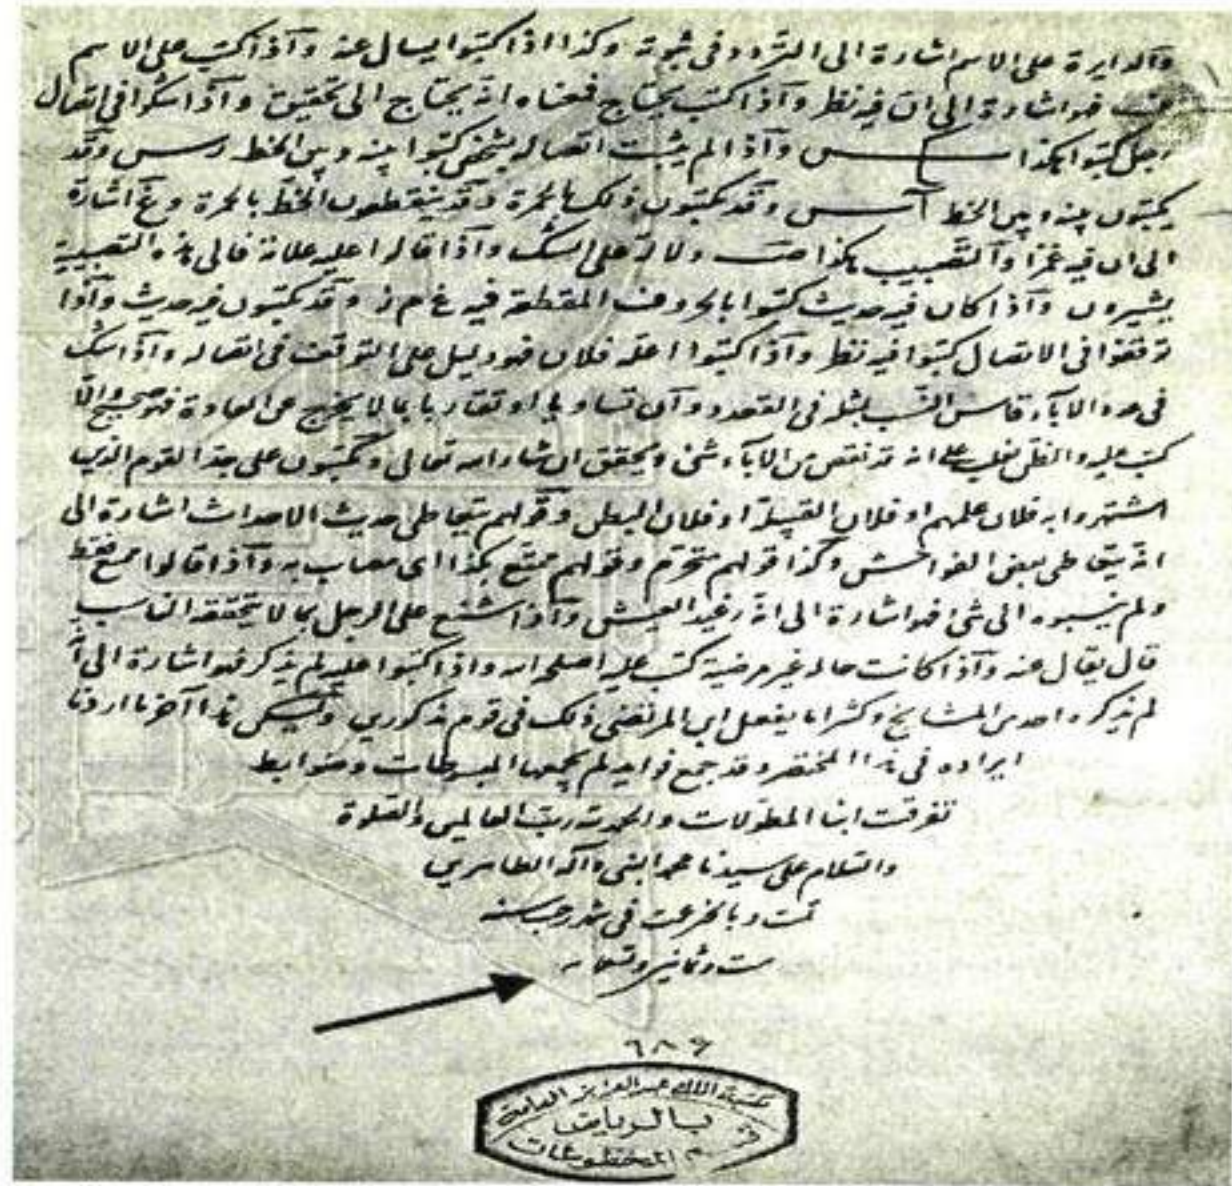 والدايرة على الاسم اشارة الى التردد في ثبوته وكذا اذا كتبوا يسال عنه وآذا كتب على الاسم
فهو اشارة الى ان فيه نظر وآذا كتب يحتاج فمعناه انه يحتاج الى تحقيق وآذا شكوا في اتصال
رجل كتبوا هكذا وآذا لم يثبت اتصاله بشخص كتبوا بينه وبين الخط وقد
يكتبون بينه وبين الخط وقد يكتبون ذلك بالحمرة وقد ينقطون الخط بالحمرة وغ اشارة
الى ان فيه غمزا والتضبيب هكذا دلالة على الشك وآذا قالوا عليه علامة فالى هذه التضبيبة
يشيرون وآذا كان فيه حديث كتبوا بالحروف المقطعة فيه غ م ز وقد يكتبون فيه حديث وآذا
توقفوا في الاتصال كتبوا فيه نظر وآذا كتبوا اعقه فلان فهو دليل على التوقف في اتصاله وآذا شك
في عدد الاباء قاس النسب بمثله في القعدد وآن تساويا او تقاربا بما لا يخرج عن العادة فهو صحيح والا
كتب عليه والظن يغلب على انه قد نقص من الاباء شئ ويحقق ان شاء الله تعالى ويكتبون على جد القوم الذين
اشتهروا به فلان علمهم او فلان القبيلة او فلان البطن وقولهم يتعاطى حديث الاحداث اشارة الى
انه يتعاطى بعض الفواحش وكذا قولهم متخرم وقولهم ممتع بكذا اى مصاب به وآذا قالوا ممتع فقط
ولم ينسبوه الى شئ فهو اشارة الى انه رغيد العيش وآذا شنع على الرجل بما لا يتحققه الناسب
قال يقال عنه وآذا كانت حاله غير مرضية كتب عليه اصلحه الله واذا كتبوا عليه لم يذكر فهو اشارة الى انه
لم يذكره احد من المشايخ وكثيرا ما يفعل ابن المرتضى ذلك في قوم مذكورين وليكن هذا آخر ما اردنا
ايراده في هذا المختصر وقد جمع فوايد لم يجمعها المبسوطات وضوابط
تفرقت المطولات والحمد لله رب العالمين والصلوة
والسلام على سيدنا محمد النبي وآله الطاهرين
تمت وبالخير عمت في شهر رجب سنه
ست وثمانين وتسعمايه
٦٨٩٤
مكتبة الملك عبد العزيز العامة
بالرياض
قسم المخطوطات